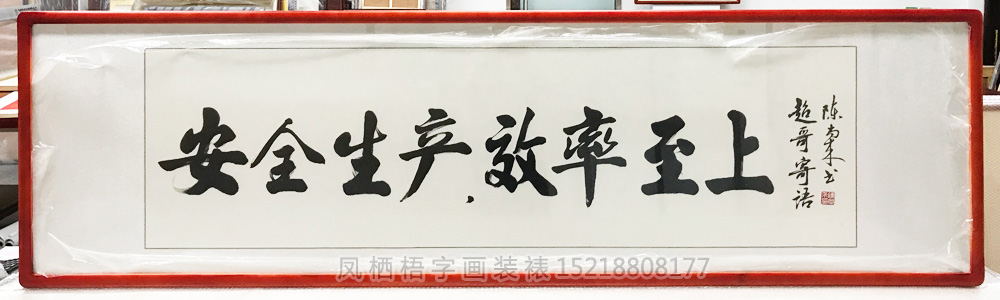 安全生产，效率至上
超哥寄语
陈南来书
凤栖梧字画装裱15218808177